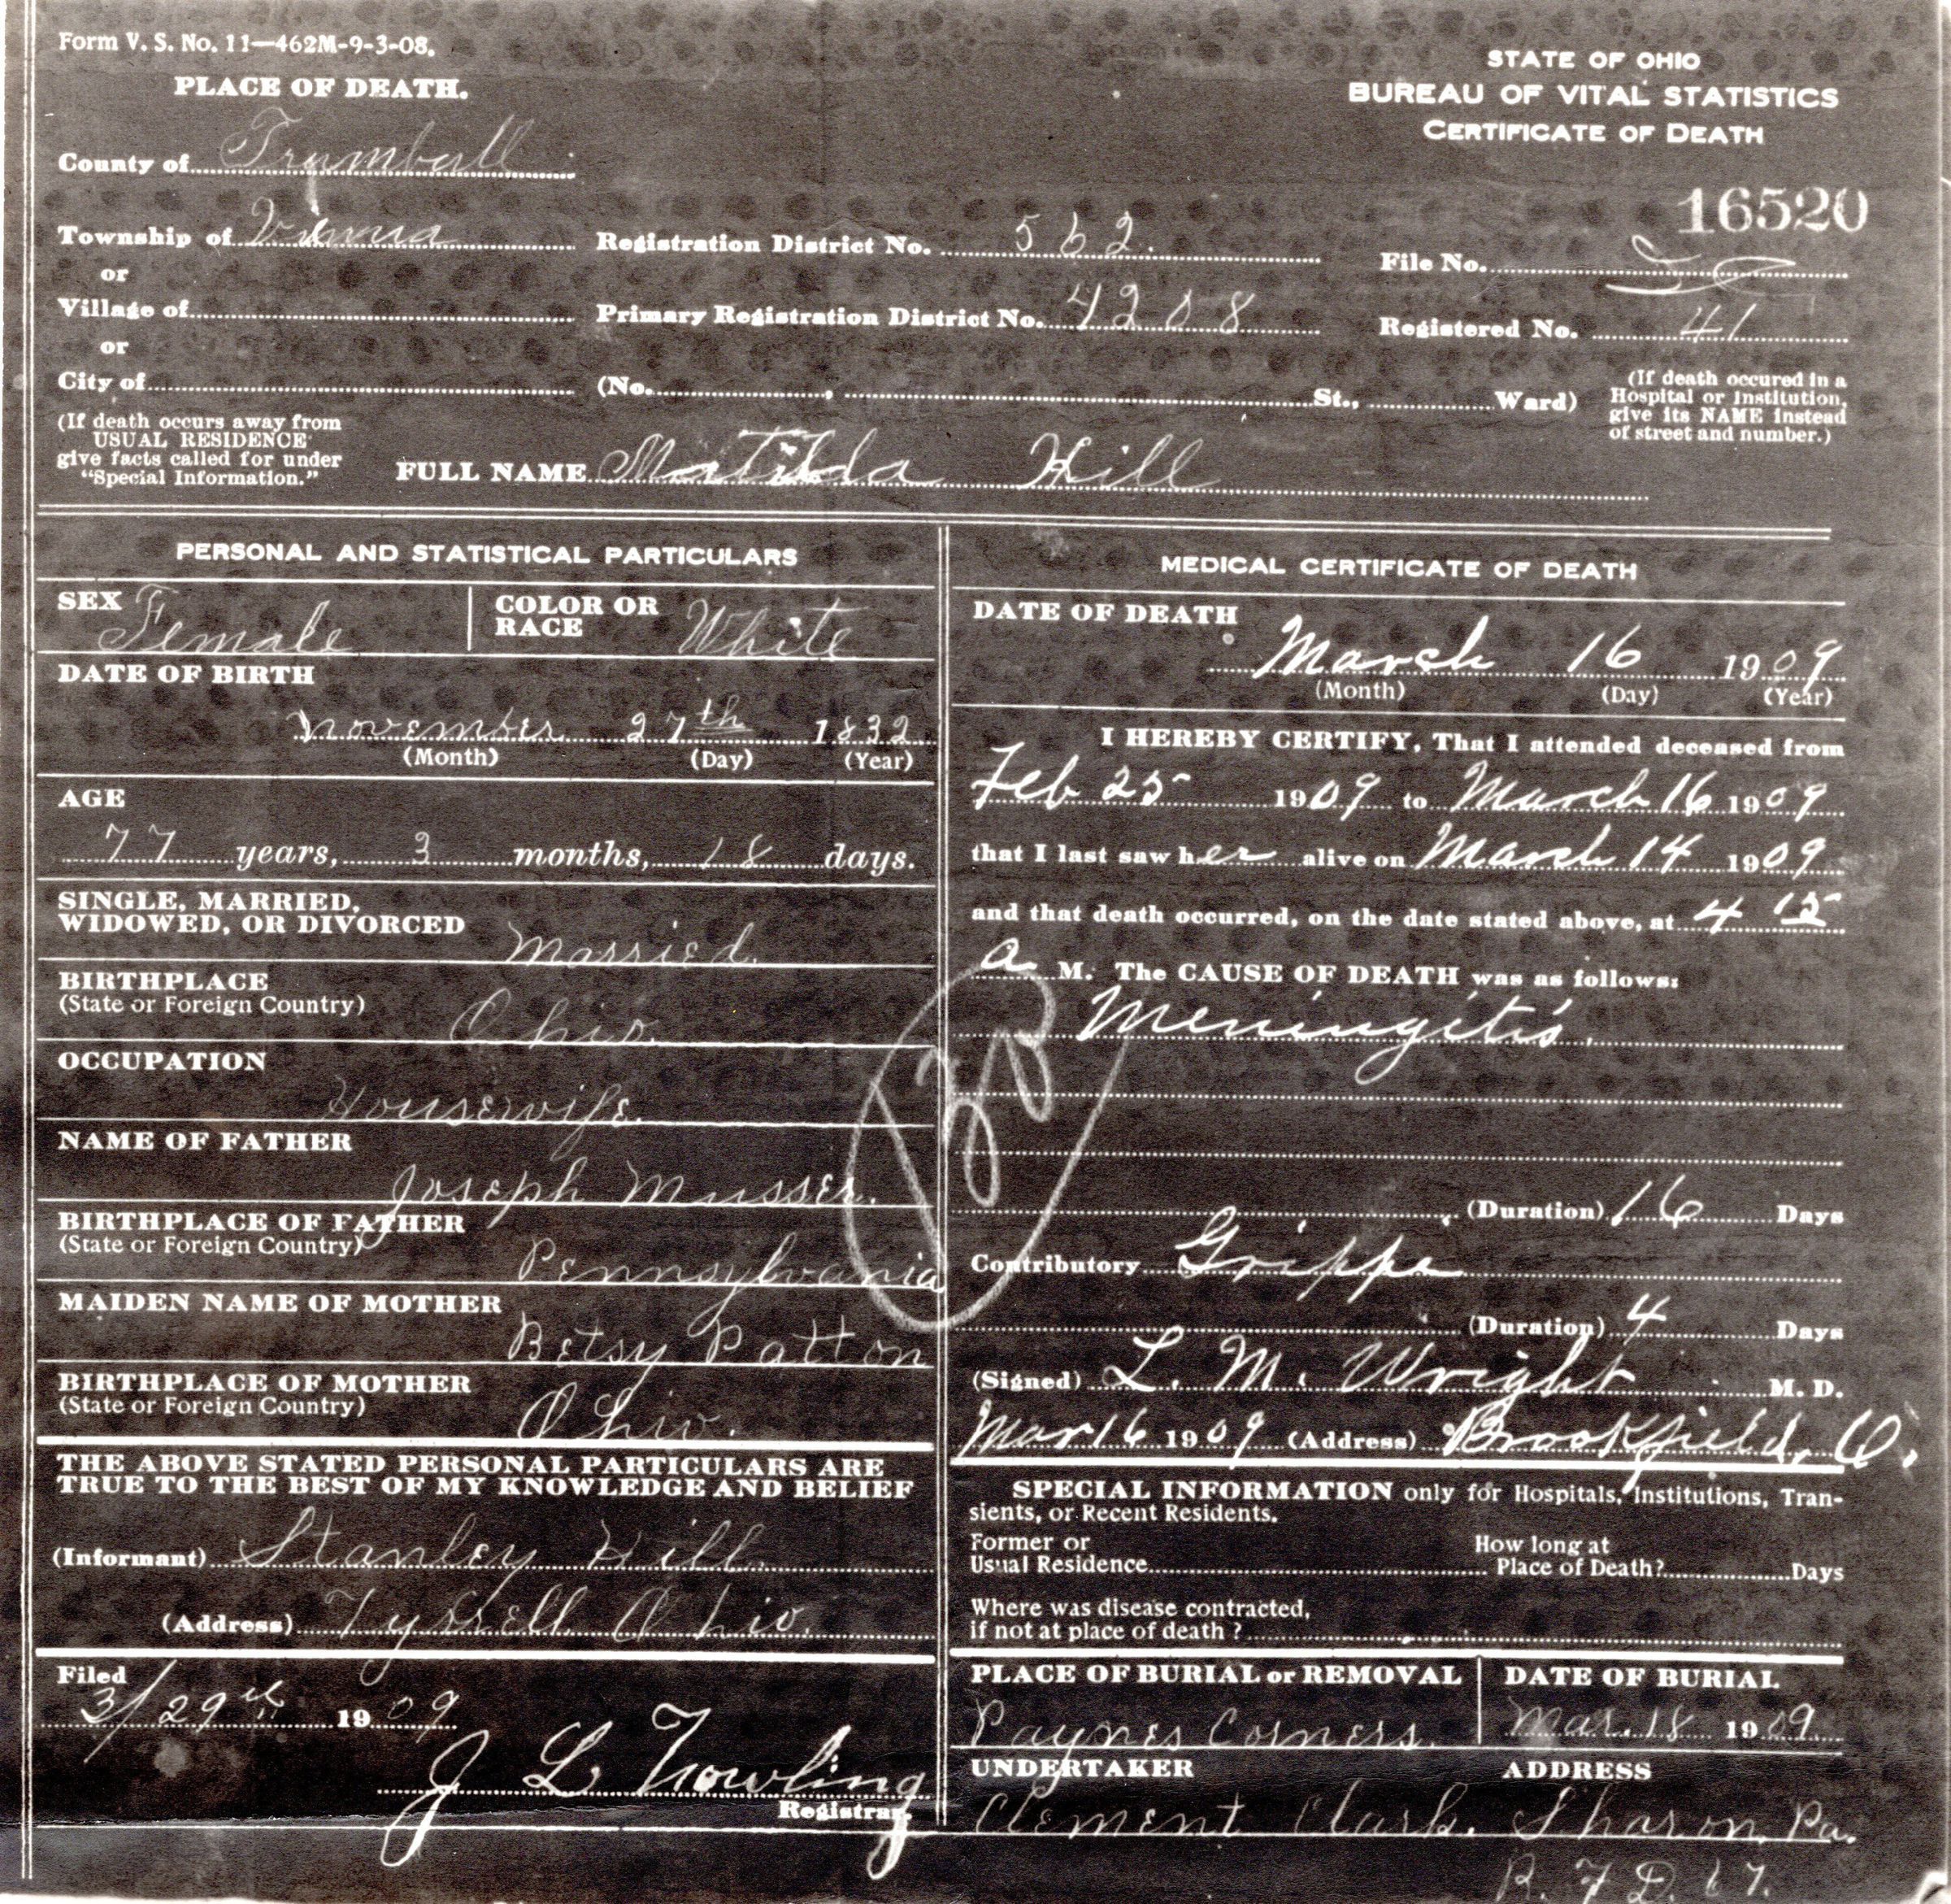 Form V. S. No. 11—462M-9-3-08.
PLACE OF DEATH.
STATE OF OHIO
BUREAU OF VITAL STATISTICS
CERTIFICATE OF DEATH
County of Trumbull
16520
Township of Vienna Registration District No. 562. File No.
or
Village of Primary Registration District No. 4208 Registered No. 41
or
City of (No. , St., Ward)
(If death occured in a
Hospital or Institution,
give its NAME instead
of street and number.)
(If death occurs away from
USUAL RESIDENCE
give facts called for under
"Special Information.")
FULL NAME Matilda Hill
PERSONAL AND STATISTICAL PARTICULARS
SEX Female COLOR OR RACE White
DATE OF BIRTH
November 27th 1832
(Month) (Day) (Year)
AGE
77 years, 3 months, 18 days.
SINGLE, MARRIED,
WIDOWED, OR DIVORCED
Married.
BIRTHPLACE
(State or Foreign Country) Ohio.
OCCUPATION
Housewife.
NAME OF FATHER
Joseph Musser.
BIRTHPLACE OF FATHER
(State or Foreign Country)
Pennsylvania
MAIDEN NAME OF MOTHER
Betsy Patton
BIRTHPLACE OF MOTHER
(State or Foreign Country) Ohio.
THE ABOVE STATED PERSONAL PARTICULARS ARE
TRUE TO THE BEST OF MY KNOWLEDGE AND BELIEF
(Informant) Stanley Hill.
(Address) Tyrrell Ohio.
Filed
3/29th 1909
J L Trowling
Registrar.
MEDICAL CERTIFICATE OF DEATH
DATE OF DEATH
March 16 1909
(Month) (Day) (Year)
I HEREBY CERTIFY, That I attended deceased from
Feb 25 1909 to March 16 1909
that I last saw her alive on March 14 1909
and that death occurred, on the date stated above, at 4 15
a M. The CAUSE OF DEATH was as follows:
Meningitis.
(Duration) 16 Days
Contributory Grippe
(Duration) 4 Days
(Signed) L. M. Wright M. D.
Mar 16 1909 (Address) Brookfield, O.
SPECIAL INFORMATION only for Hospitals, Institutions, Tran-
sients, or Recent Residents.
Former or
Usual Residence
How long at
Place of Death? Days
Where was disease contracted,
if not at place of death ?
PLACE OF BURIAL or REMOVAL DATE OF BURIAL
Paynes Corners. Mar. 18 1909
UNDERTAKER ADDRESS
Clement Clark. Sharon, Pa.
R. F D. 67.